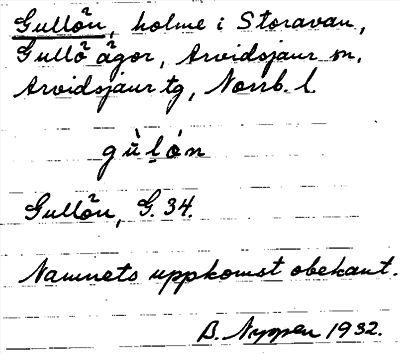 Gullön, holme i Storavan,
Gullö ägor, Arvidsjaur sn,
Arvidsjaur tg, Norrb. l.
gù̀lǫ́n
Gullön, G. 34.
Namnets uppkomst obekant.
B. Nyppen 1932.